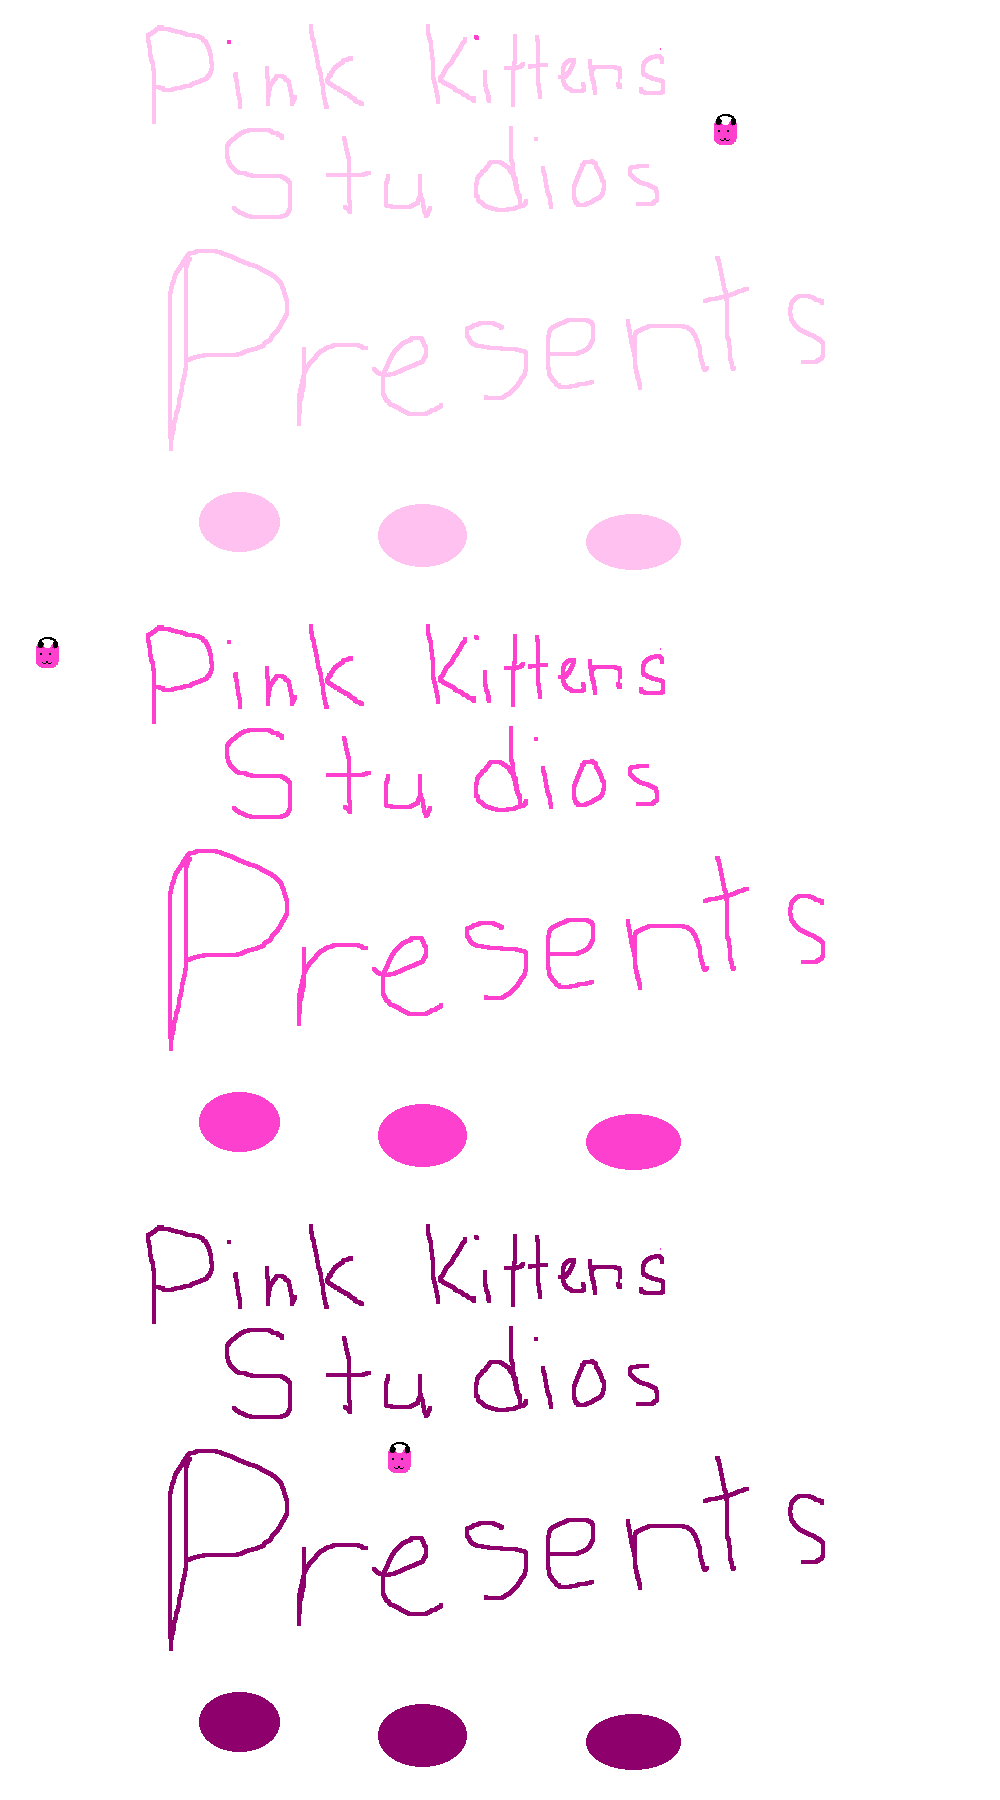 Pink Kittens
Studios
Presents
Pink Kittens
Studios
Presents
Pink Kittens
Studios
Presents